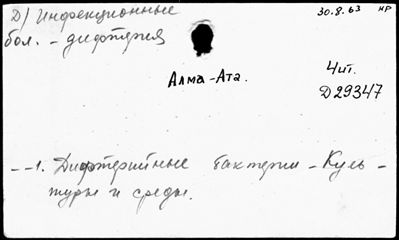 Д/ Инфекционные
30.8.63 НР
бол. – дифтерия
Алма-Ата.
Чит.
Д29347
--1. Дифтерийные бактерии – Куль-
туры и среды.